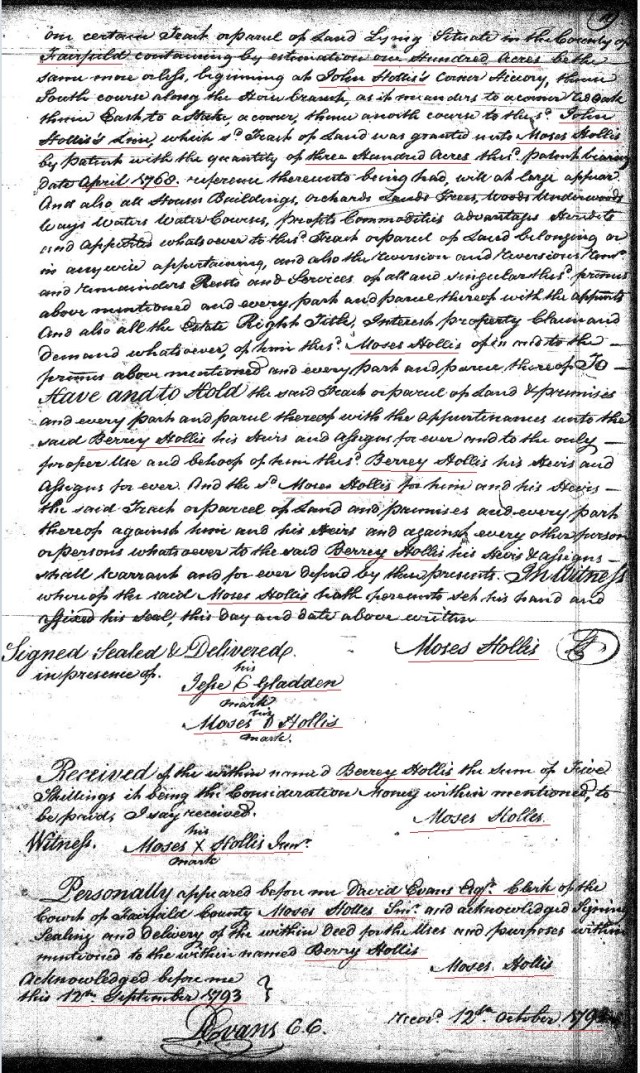 one certain Tract or parcel of Land Lying Situate in the County of
Fairfield containing by estimation one Hundred Acres be the
same more or less, beginning at John Hollis's Corner Hicory, thence
South course along the branch, as it meanders to a corner
thence East to a Stake, a corner, thence a north course to the sd. John
Hollis's Line, which sd. Tract of Land was granted unto Moses Hollis
by Patent with the quantity of three Hundred Acres the sd. patent bearing
date April 1768. reference thereunto being had, will at large appear.
And also all Houses Buildings, orchards Lands Trees, Woods Underwoods
Ways Waters Water Courses, profits Commodities advantages
and whatsoever to the sd. Tract or parcel of Land belonging or
in any wise appertaining, and also the reversion and reversions
and remainders Rents and Services of all and singular the sd.
above mentioned and every part and parcel thereof with the
And also all the Estate Right Title, Interest property Claim and
demand whatsoever, of him the sd. Moses Hollis of in and to the
above mentioned and every part and parcel thereof To
Have and to Hold the said Tract or parcel of Land & premises
and every part and parcel thereof with the appurtenances unto the
said Berrey Hollis his Heirs and Assigns for ever and to the only
proper Use and behoof of him the sd. Berrey Hollis his Heirs and
Assigns for ever. And the sd. Moses Hollis for him and his Heirs
the said Tract or parcel of Land and premises and every part
thereof against him and his Heirs and against every other person
or persons whatsoever to the said Berrey Hollis his Heirs & assigns
shall warrant and for ever defend by these presents. In Witness
whereof the said Moses Hollis hath hereunto set his hand and
affixed his Seal, this day and date above written
Signed Sealed & Delivered. Moses Hollis
in presence of.
his
Jesse C Gladden
mark
his
Moses D Hollis
mark.
Received of the within named Berrey Hollis the sum of Five
Shillings it being the Consideration Money within mentioned, to
be paid, I say received. Moses Hollis.
his
Witness. Moses X Hollis Junr.
mark
Personally appeared before me David Evans Esqr. Clerk of the
Court of Fairfield County Moses Hollis Senr. and acknowledged Signing
Sealing and delivery of the within Deed for the Uses and purposes within
mentioned to the within named Berry Hollis
Moses Hollis
Acknowledged before me
this 12th September 1793
DEvans C.C.
Recod. 12th October